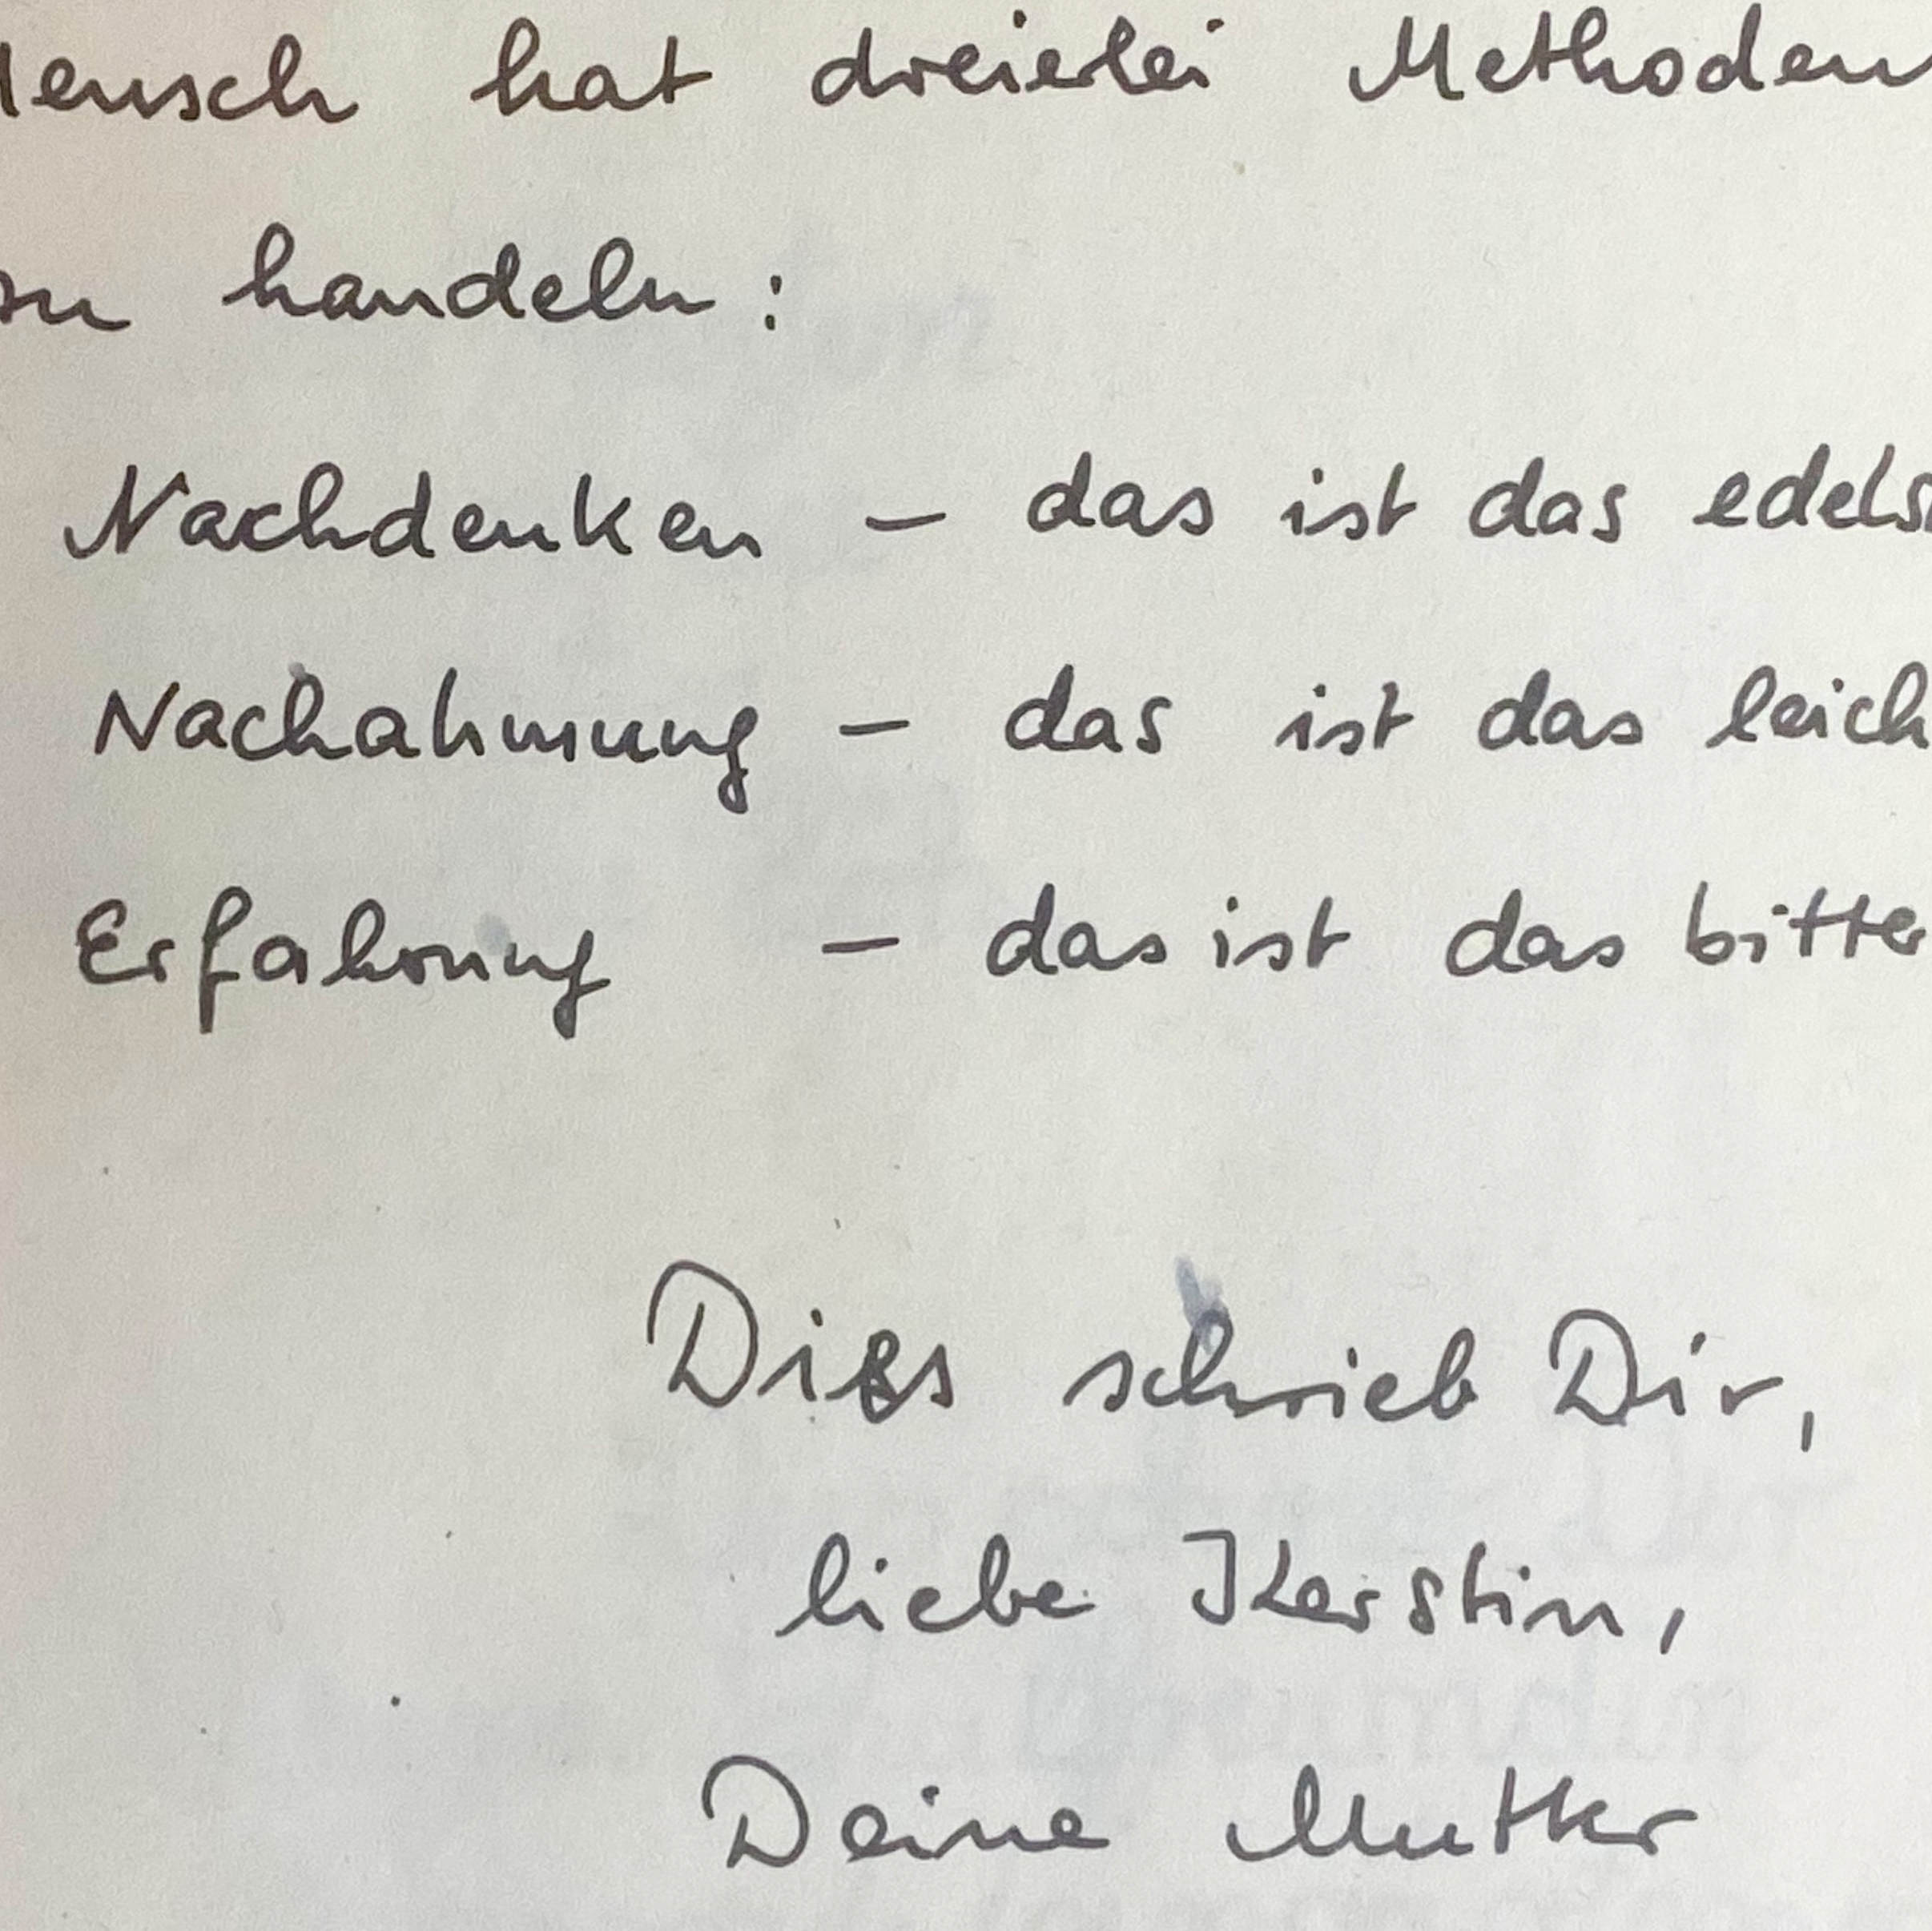 Mensch hat dreierlei Methoden
zu handeln:
Nachdenken – das ist das edels
Nachahmung – das ist das leich
Erfahrung – das ist das bitter
Dies schrieb Dir,
liebe Kerstin,
Deine Mutter